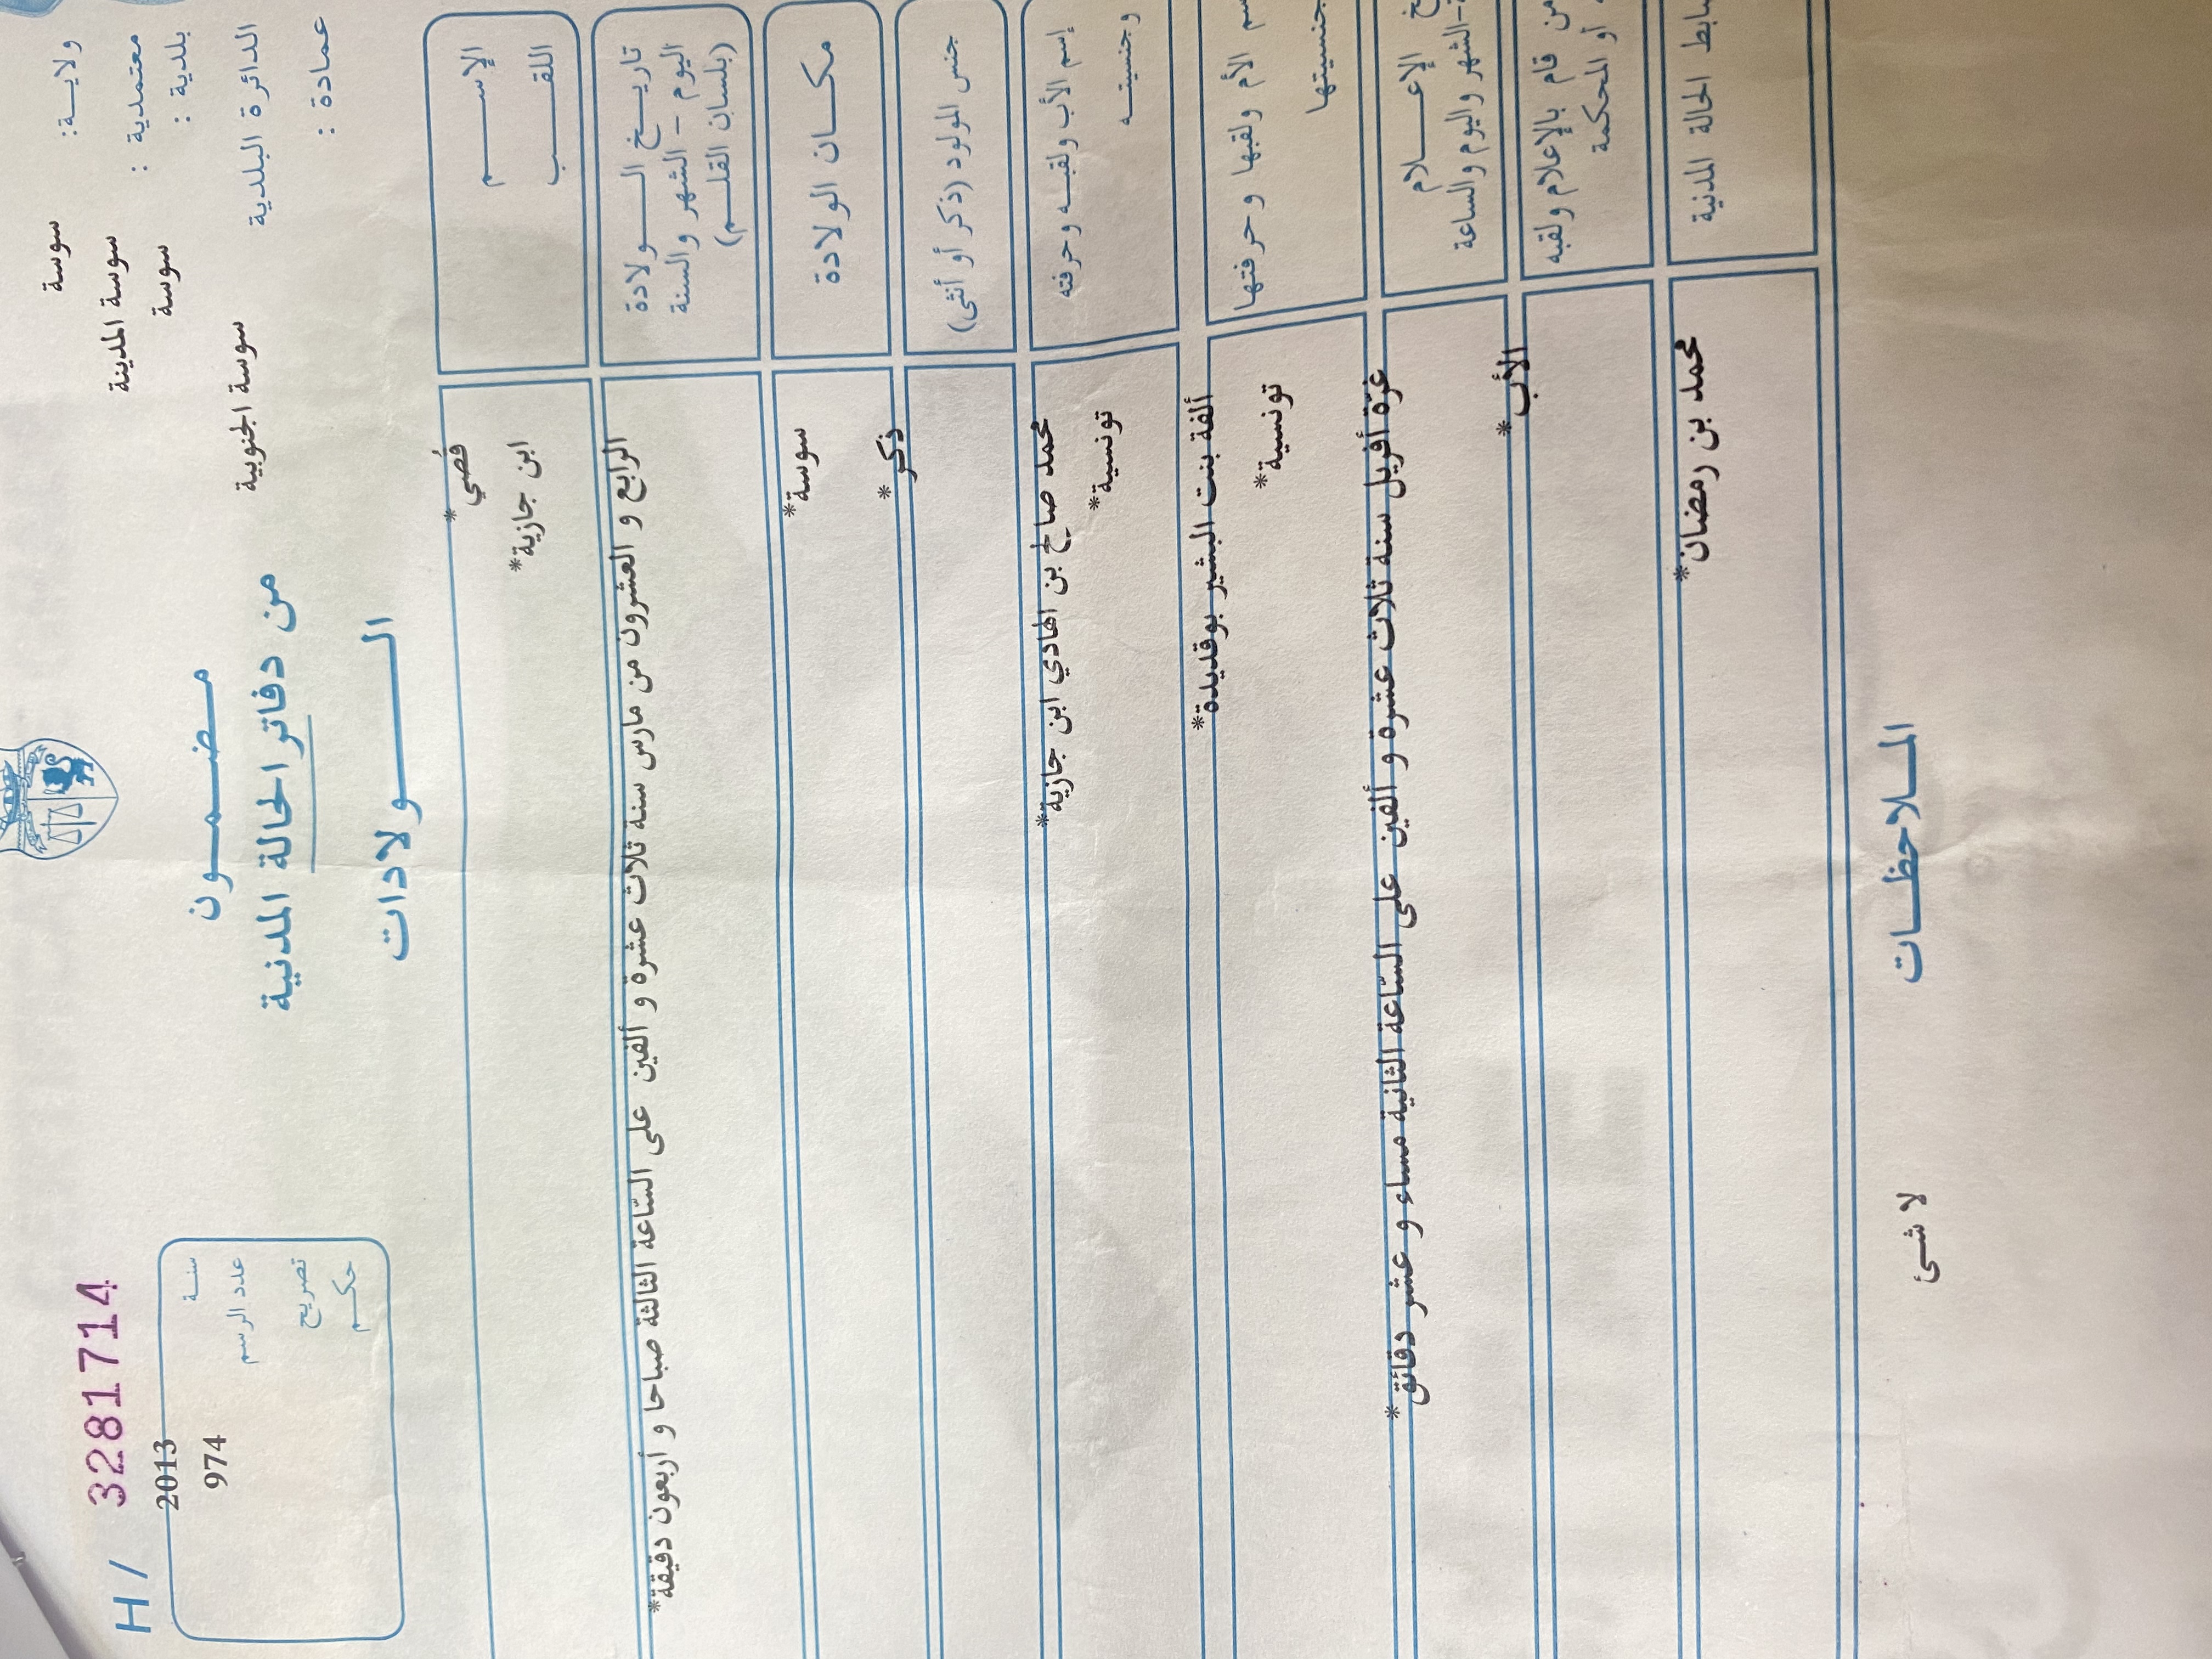 ولايـة: سوسة
معتمدية : سوسة المدينة
بلدية : سوسة
الدائرة البلدية سوسة الجنوبية
عمادة :
H/ 3281714
سنـة 2013
عدد الرسم 974
تصريح
حكـم
مضـمــون
من دفاتر الحالة المدنية
الـــولادات
الإســـم قُصَي*
اللقـــب ابن جازية*
تاريـــخ الـــولادة
اليوم – الشهر والسنة
(بلسان القلـــم)
الرابع و العشرون من مارس سنة ثلاث عشرة و ألفين على السّاعة الثالثة صباحا و أربعون دقيقة*
مكــان الولادة سوسة*
جنس المولود (ذكر أو أنثى) ذكر*
إسم الأب ولقبـه وحرفته محمد صالح بن الهادي ابن جازية*
وجنسيتـه تونسية*
الأم ولقبها وحرفتها ألفة بنت البشير بوقديدة*
جنسيتها تونسية*
الإعـــلام
الشهر واليوم والساعة
غرّة أفريل سنة ثلاث عشرة و ألفين على السّاعة الثانية مساء و عشر دقائق*
من قام بالإعلام ولقبه
أو المحكمة
الأب*
الحالة المدنية محمد بن رمضان*
المـلاحظـات
لا شئ